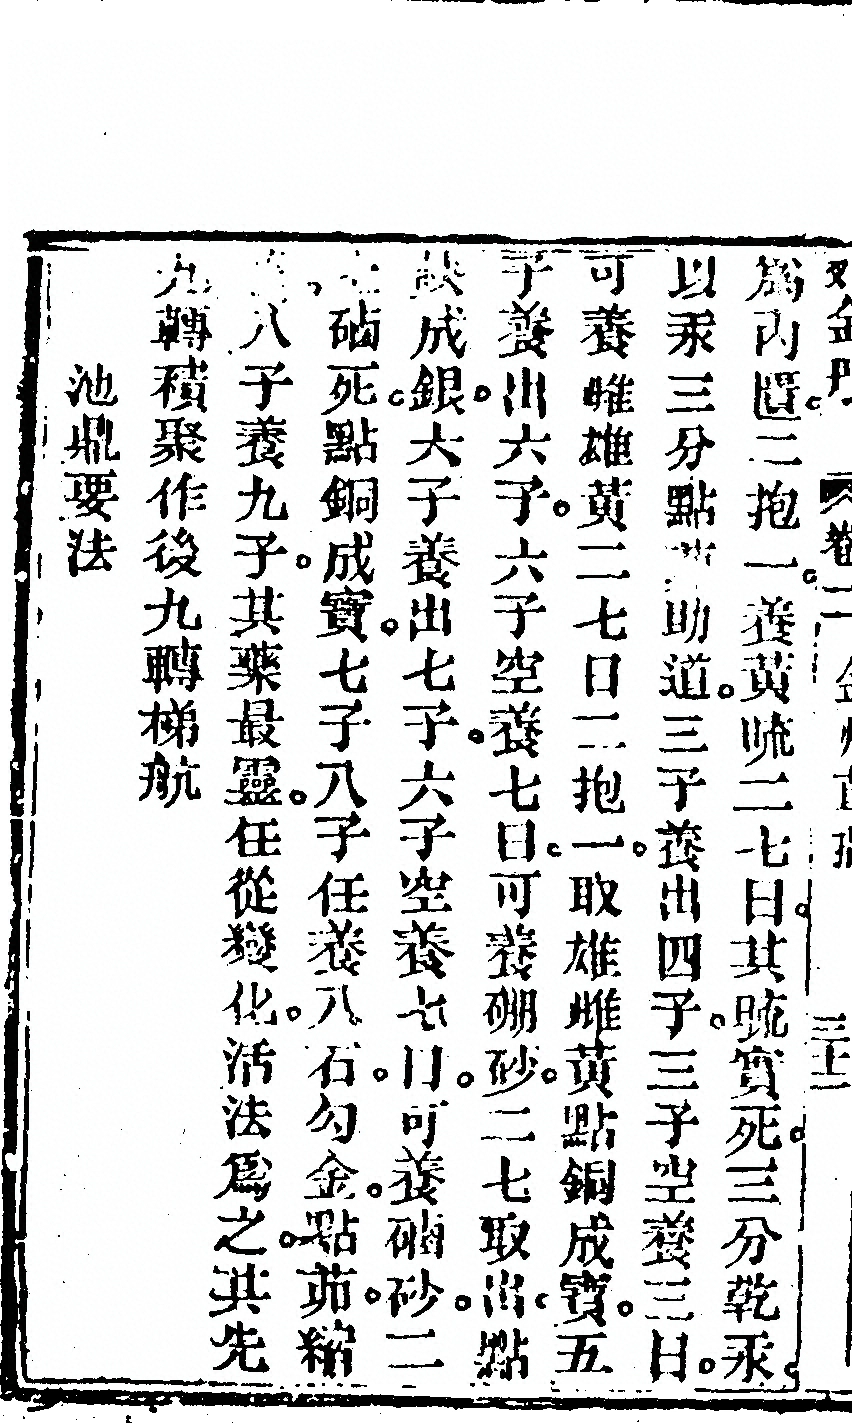 卷二
三十二
為內匱二抱一養黃硫二七日其硫實死三分乾汞
以汞三分點助道三子養出四子三子空養三日
可養雌雄黃二七日二抱一取雄雌黃點銅成寶五
子養出六子六子空養七日可養硼砂二七取出點
鐵成銀六子養出七子六子空養七日可養硇砂二
七硇死點銅成寶七子八子任養八石勾金點茆縮
八子養九子其藥最靈任從變化活法為之其先
九轉積聚作後九轉梯航
池鼎要法